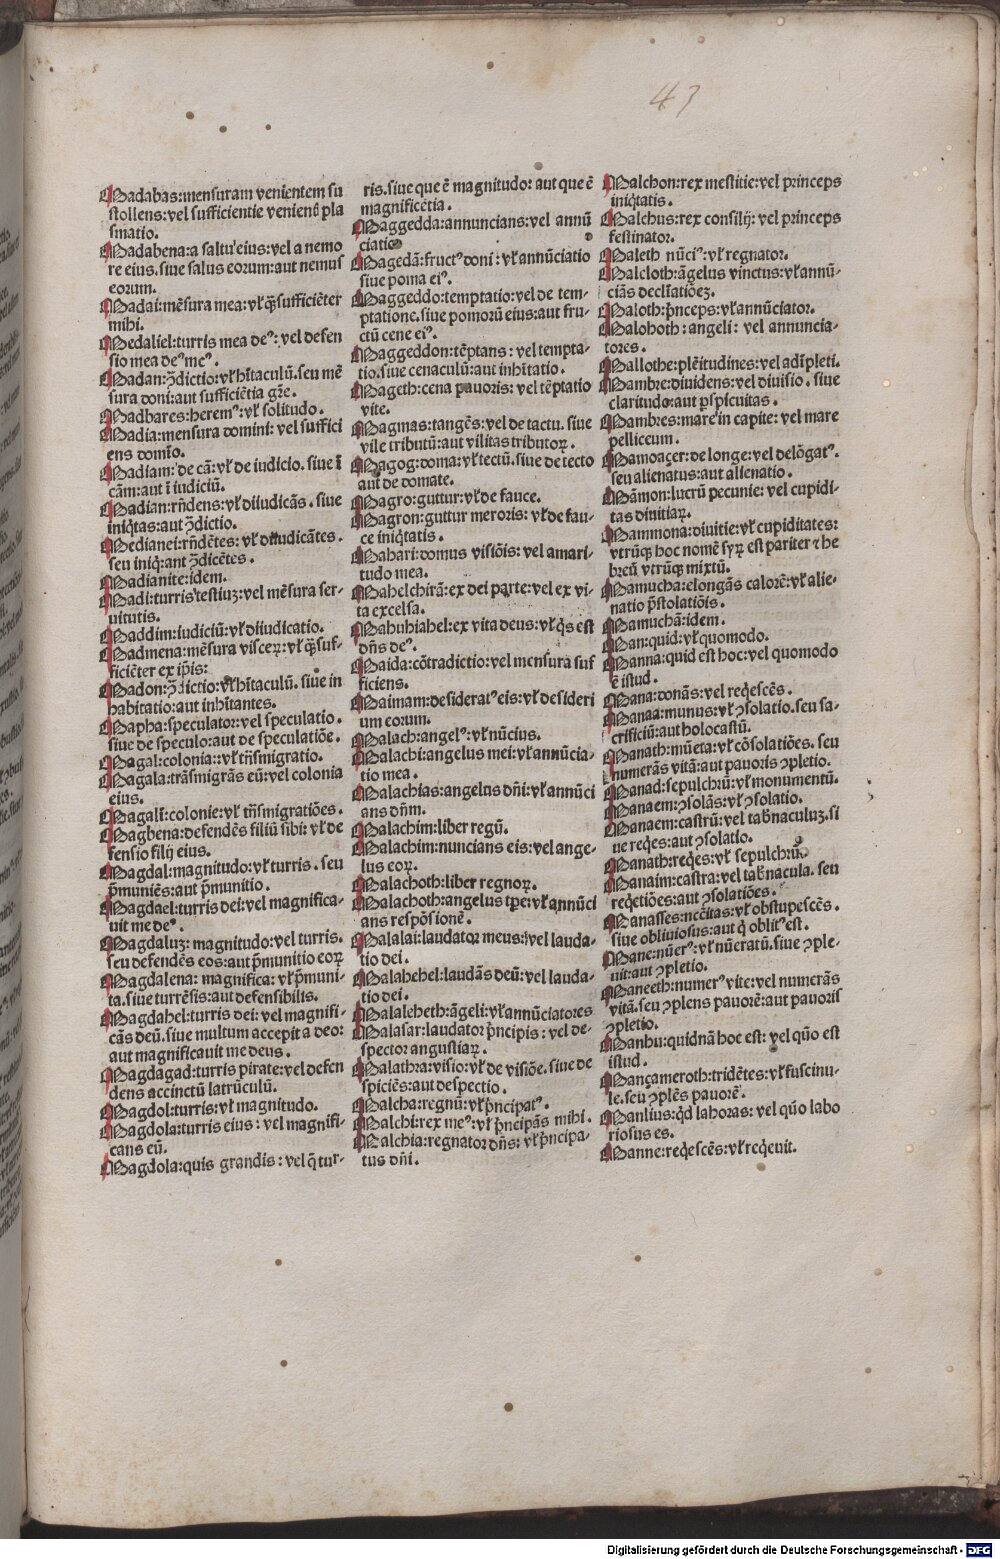 43
Madabas:mensuram venientem su
stollens:vel sufficientie veniens pla
smatio.
Madabena:a saltu eius:vel a nemo
re eius.siue salus eorum:aut nemus
eorum.
Madai:mēsura mea:vł q̄ȝ sufficiēter
mihi.
Medaliel:turris mea deꝰ:vel defen
sio mea deꝰ meꝰ.
Madan:ꝯ̄dictio:vł hītaculū.seu mē
sura doni:aut sufficiētia gr̄e.
Madbares:heremꝰ:vł solitudo.
Madia:mensura domini:vel suffici
ens domīo.
Madiam:de cā:vł de iudicio.siue ī
cām:aut ī iudiciū.
Madian:rn̄dens:vł diiudicās.siue
iniq̇tas:aut ꝯ̄dictio.
Medianei:rn̄dētes:vł diiudicātes.
seu iniq̇:aut ꝯ̄dicētes.
Madianite:idem.
Madi:turris testiuȝ:vel mēsura ser-
uitutis.
Maddim:iudiciū:vł diiudicatio.
Madmena:mēsura visceꝝ:vł q̄ȝ suf-
ficiēter ex ip̄is:
Madon:ꝯ̄dictio:vł hītaculū.siue in
habitatio:aut inhītantes.
Mapha:speculator:vel speculatio.
siue de speculo:aut de speculatiōe.
Magal:colonia::vł trn̄smigratio.
Magala:trāsmigrās eū:vel colonia
eius.
Magalī:colonie:vł trn̄smigratiōes.
Magbena:defendēs filiū sibi:vł de
fensio filij eius.
Magdal:magnitudo:vł turris.seu
p̄muniēs:aut p̄munitio.
Magdael:turris dei:vel magnifica-
uit me deꝰ.
Magdaluȝ:magnitudo:vel turris.
seu defendēs eos:aut p̄munitio eoꝝ
Magdalena:magnifica:vł p̄muni-
ta.siue turrēsis:aut defensibilis.
Magdahel:turris dei:vel magnifi-
cās deū.siue multum accepit a deo:
aut magnificauit me deus.
Magdagad:turris pirate:vel defen
dens accinctū latrūculū.
Magdol:turris:vł magnitudo.
Magdola:turris eius:vel magnifi-
cans eū.
Magdola:quis grandis:vel q̄ tur-
ris.siue que ē magnitudo:aut que ē
magnificētia.
Maggedda:annuncians:vel annū
ciatio
Magedā:fructꝰ doni:vł annūciatio
siue poma eiꝰ.
Maggeddo:temptatio:vel de tem-
ptatione.siue pomorū eius:aut fru-
ctū cene eiꝰ.
Maggeddon:tēptans:vel tempta-
tio.siue cenaculū:aut inhītatio.
Mageth:cena pauoris:vel tēptatio
vite.
Magmas:tangēs:vel de tactu.siue
vile tributū:aut vilitas tributoꝝ.
Magog:doma:vł tectū.siue de tecto
aut de domate.
Magro:guttur:vł de fauce.
Magron:guttur meroris:vł de fau-
ce iniq̇tatis.
Mahari:domus visiōis:vel amari-
tudo mea.
Mahelchirā:ex dei parte:vel ex vi-
ta excelsa.
Mahuhiahel:ex vita deus:vł q̇s est
dn̄s deꝰ.
Maida:cōtradictio:vel mensura suf
ficiens.
Maimam:desideratꝰ eis:vł desideri
um eorum.
Malach:angelꝰ:vł nūcius.
Malachi:angelus mei:vł annūcia-
tio mea.
Malachias:angelus dn̄i:vł annūci
ans dn̄m.
Malachim:liber regū.
Malachim:nuncians eis:vel ange-
lus eoꝝ.
Malachoth:liber regnoꝝ.
Malachoth:angelus tpe:vł annūci
ans respōsionē.
Malalai:laudator meus:vel lauda-
tio dei.
Malahehel:laudās deū:vel lauda-
tio dei.
Malaleheth:āgeli:vł annūciatores
Malasar:laudator p̄ncipis:vel de-
spector angustiaꝝ.
Malathra:visio:vł de visiōe.siue de
spiciēs:aut despectio.
Malcha:regnū:vł p̄ncipatꝰ.
Malchi:rex meꝰ:vł p̄ncipās mihi.
Malchia:regnator dn̄s:vł p̄ncipa-
tus dn̄i.
Malchon:rex mestitie:vel princeps
iniq̇tatis.
Malchus:rex consilij:vel princeps
festinator.
Maleth nūciꝰ:vł regnator.
Malcloth:āgelus vinctus:vł annū-
ciās declīatiōeȝ.
Maloth:p̄nceps:vł annūciator.
Malohoth:angeli:vel annuncia-
tores.
Mallothe:plēitudines:vel adīpleti.
Mambre:diuidens:vel diuisio.siue
claritudo:aut ꝑspicuitas.
Mambres:mare in capite:vel mare
pelliceum.
Mamoaçer:de longe:vel delōgatꝰ.
seu alienatus:aut alienatio.
Māmon:lucrū pecunie:vel cupidi-
tas diuitiaꝝ.
Mammona:diuitie:vł cupiditates:
vtrūqȝ hoc nomē syꝝ est pariter ⁊ he
breū vtrūqȝ mixtū.
Mamucha:elongās calorē:vł alie-
natio p̄stolatiōis.
Mamuchā:idem.
Man:quid:vł quomodo.
Manna:quid est hoc:vel quomodo
ē istud.
Mana:donās:vel req̇escēs.
Manaa:munus:vł ꝯsolatio.seu sa-
crificiū:aut holocastū.
Manath:mūera:vł cōsolatiōes.seu
numerās vitā:aut pauoris ꝯpletio.
Manad:sepulchrū:vł monumentū.
Manaem:ꝯsolās:vł ꝯsolatio.
Manaem:castrū:vel tab̄naculuȝ.si
ue reqes:aut ꝯsolatio.
Manath:req̇es:vł sepulchrū.
Manaim:castra:vel tab̄nacula.seu
req̇etiōes:aut ꝯsolatiōes.
Manasses:nēcitas:vł obstupescēs.
siue obliuiosus:aut q̇ oblitꝰ est.
Mane:nūerꝰ:vł nūeratū.siue ꝯple-
uit:aut ꝯpletio.
Maneeth:numerꝰ vite:vel numerās
vitā.seu ꝯplens pauorē:aut pauoris
ꝯpletio.
Manhu:quidnā hoc est:vel quō est
istud.
Mançameroth:tridētes:vł fuscinu-
le.seu ꝯplēs pauorē.
Manlius:qd̄ laboras:vel quō labo
riosus es.
Manne:req̇escēs:vł req̇euit.
Digitalisierung gefördert durch die Deutsche Forschungsgemeinschaft - DFG